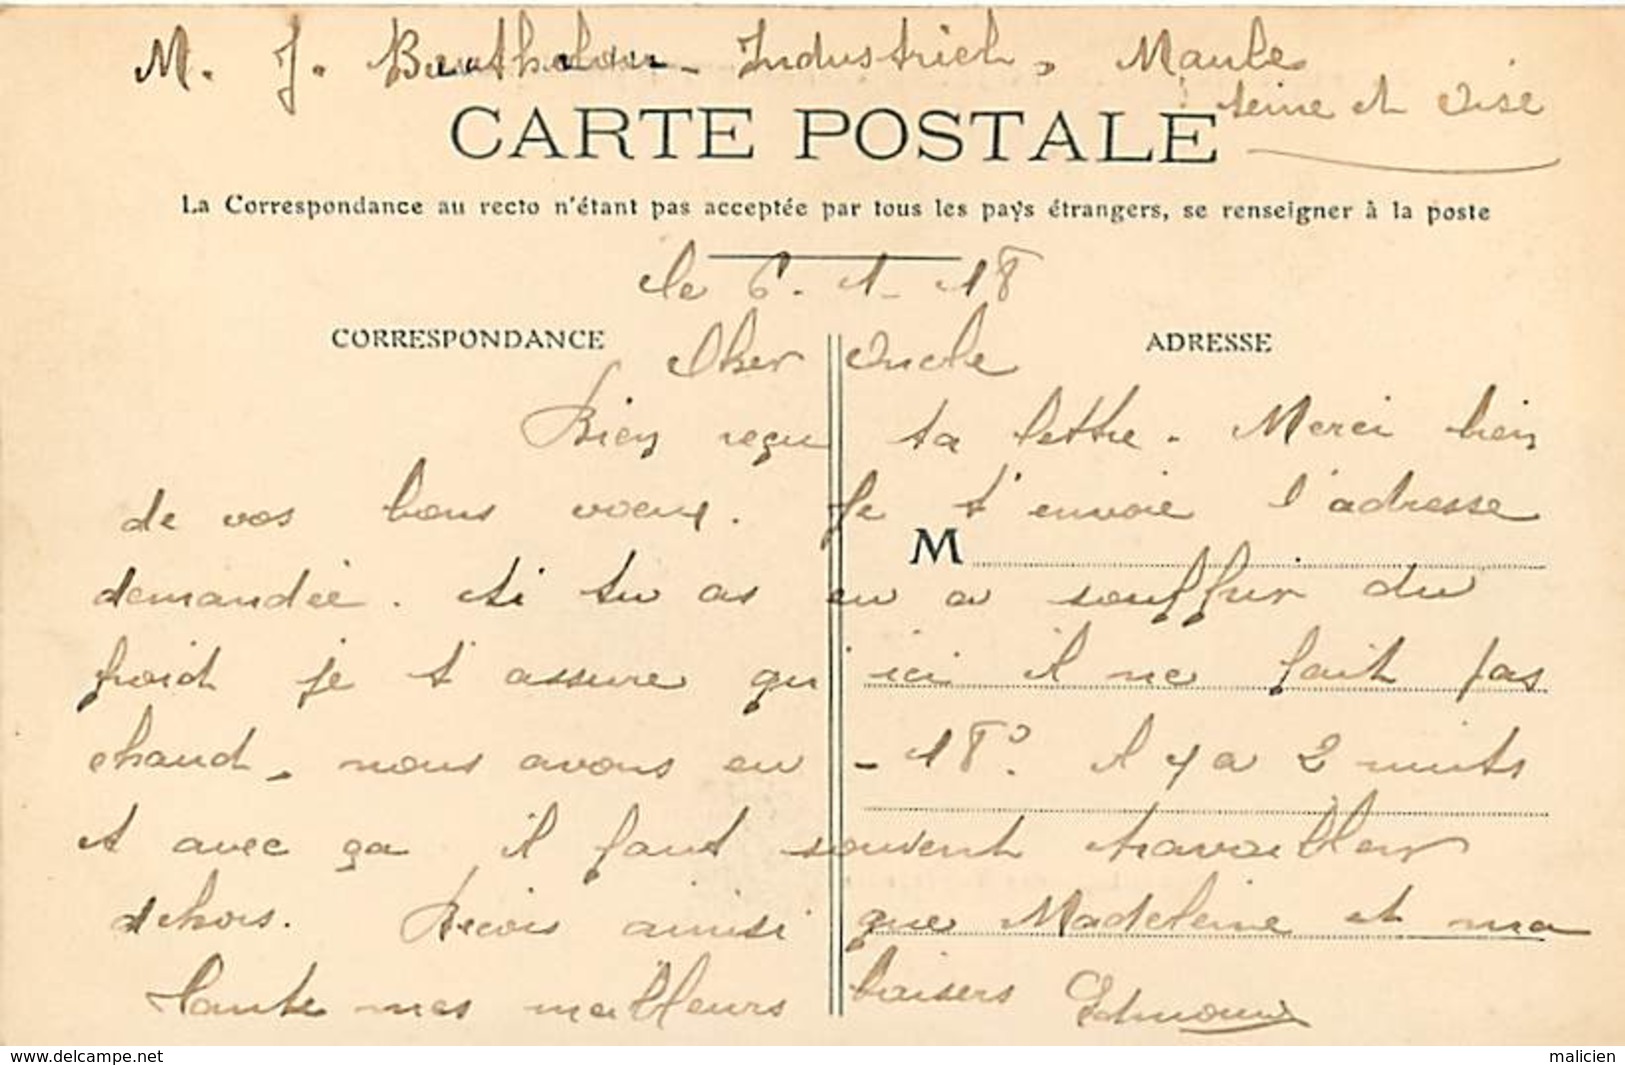 M. J. Industriel, Maule
Seine et Oise
CARTE POSTALE
La Correspondance au recto n'étant pas acceptée par tous les pays étrangers, se renseigner à la poste
le 6. 1. 18
CORRESPONDANCE
ADRESSE
Cher Oncle
Bien reçu ta lettre. Merci bien
de vos bons voeux. Je t'envoie l'adresse
M
demandée. Si tu as eu a souffrir du
froid je t'assure qu'ici il ne fait pas
chaud, nous avons eu -18°. il y a 2 nuits
et avec ça il faut souvent travailler
dehors. Recois ainsi que Madeleine et ma
tante mes meilleurs baisers Edmond
www.delcampe.net
malicien